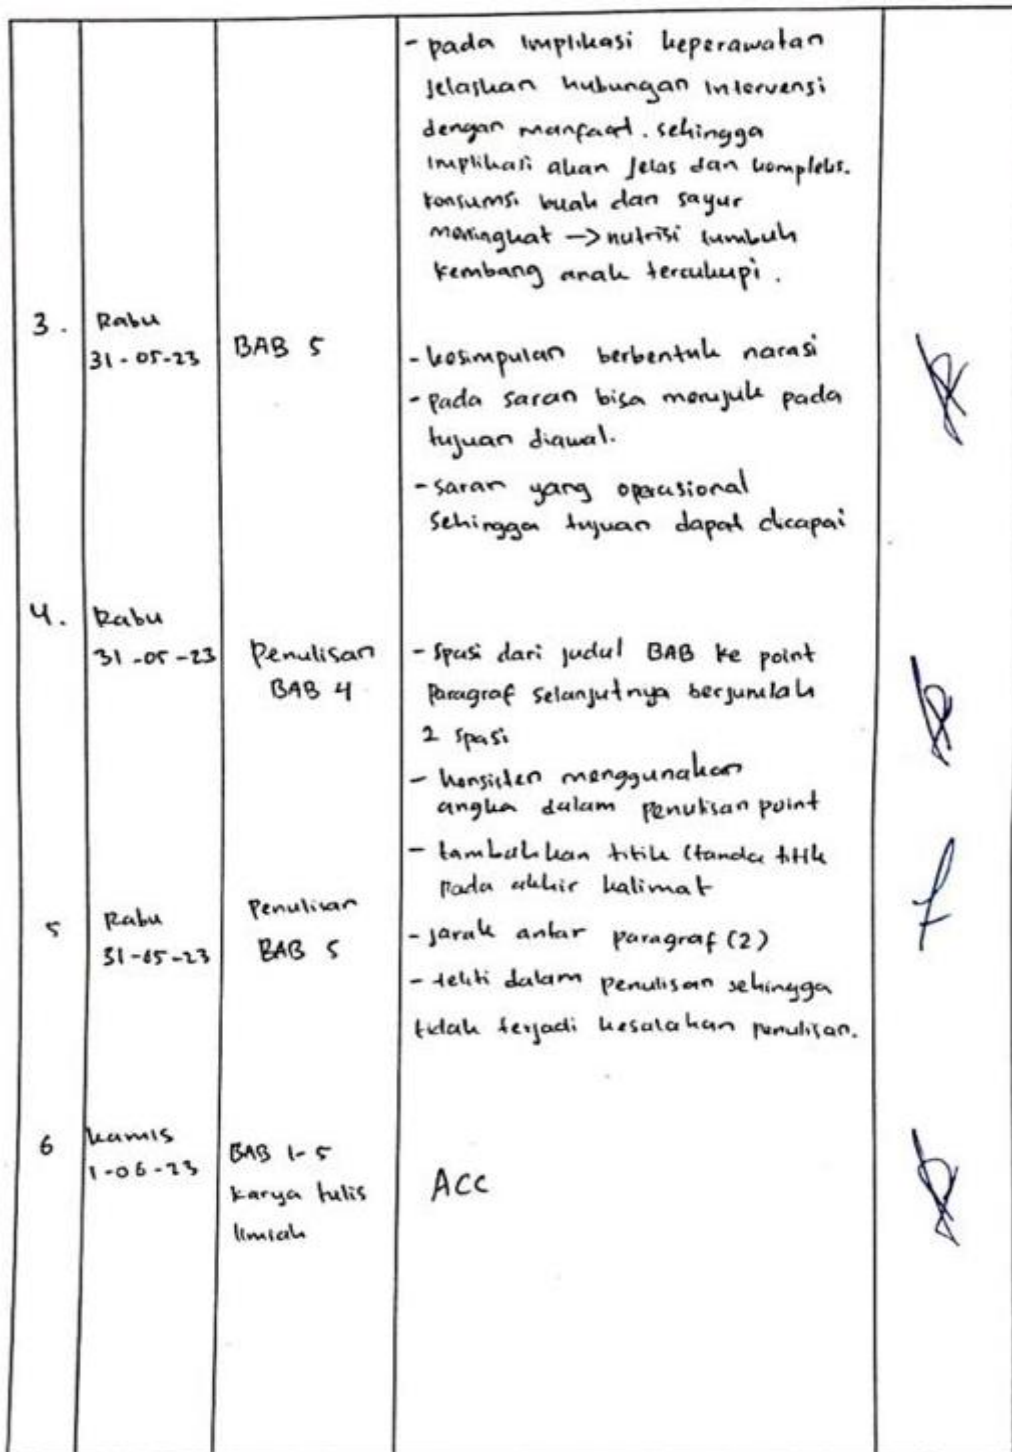 - pada Implikasi keperawatan
jelaskan hubungan intervensi
dengan manfaat. sehingga
Implikasi akan jelas dan kompleks.
konsumsi buah dan sayur
meningkat -> nutrisi tumbuh
kembang anak tercukupi.
3. Rabu
31-05-23 BAB 5
- kesimpulan berbentuk narasi
- pada saran bisa merujuk pada
tujuan diawal.
- saran yang operasional
sehingga tujuan dapat dicapai
4. Rabu
31-05-23
Penulisan
BAB 4
- Spasi dari judul BAB ke point
Paragraf selanjutnya berjumlah
2 spasi
- konsisten menggunakan
angka dalam penulisan point
- tambahkan titik (tanda titik
pada akhir kalimat
5 Rabu
31-05-23
Penulisan
BAB 5
- jarak antar paragraf (2)
- teliti dalam penulisan sehingga
tidak terjadi kesalahan penulisan.
6 kamis
1-06-23
BAB 1-5
karya tulis
Ilmiah
ACC